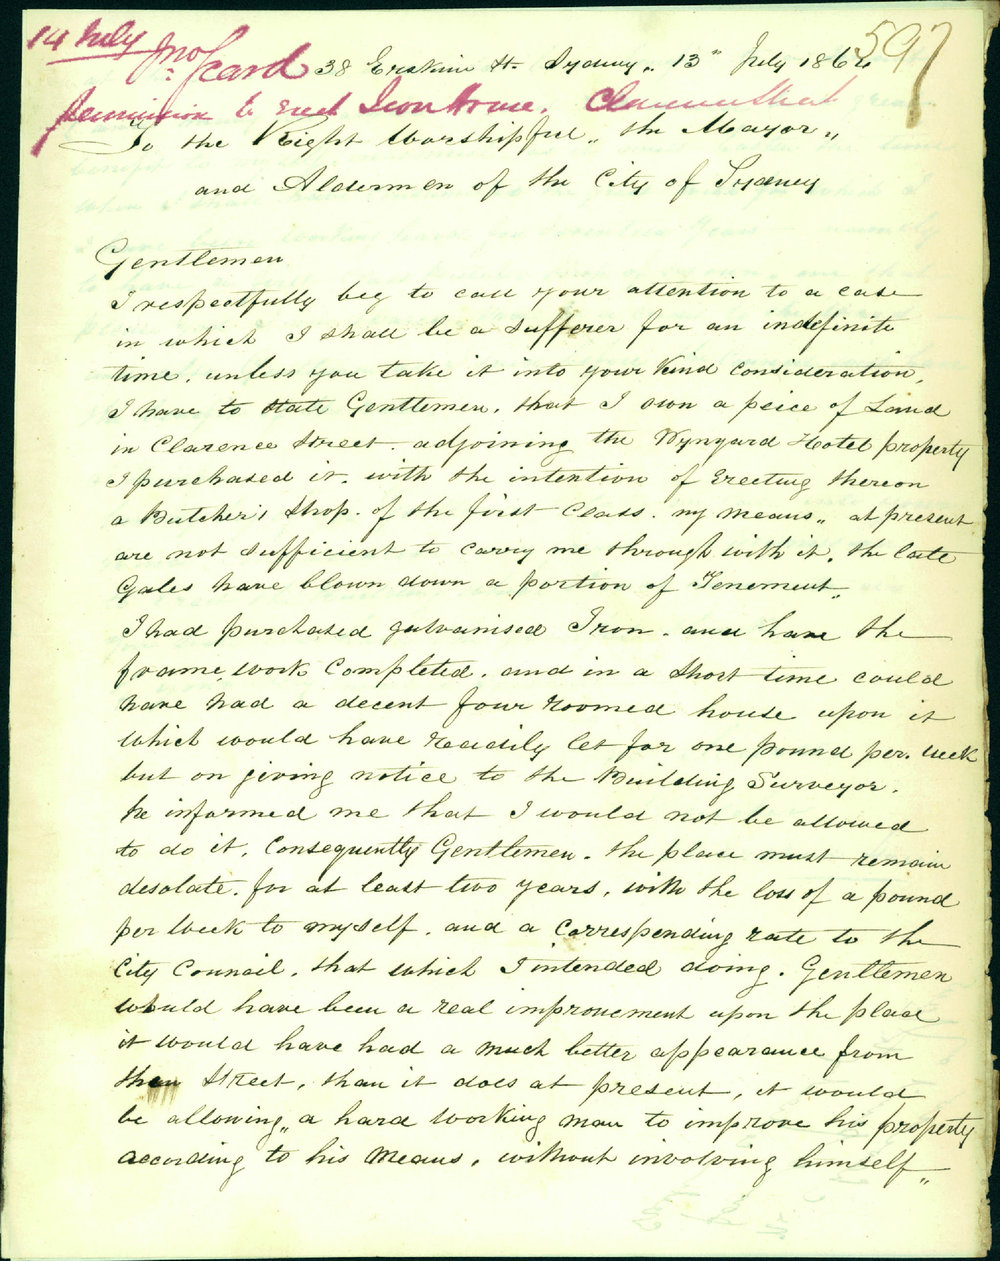 14 July
597
Jno Card
38 Erskine St. Sydney, 13th July 1864
permission to erect Iron House. Clarence Street
To the Right Worshipful, the Mayor,
and Aldermen of the City of Sydney
Gentlemen
I respectfully beg to call your attention to a case
in which I shall be a sufferer for an indefinite
time, unless you take it into your kind consideration,
I have to state Gentlemen, that I own a peice of Land
in Clarence Street adjoining the Wynyard Hotel property
I purchased it, with the intention of Erecting thereon
a Butcher's Shop of the first Class. my means, at present
are not sufficient to carry me through with it, the late
Gales have blown down a portion of Tenement.
I had purchased galvanised Iron. and have the
frame work completed, and in a short time could
have had a decent four roomed house upon it
which would have readily let for one pound per. week
but on giving notice to the Building Surveyor,
he informed me that I would not be allowed
to do it, Consequently Gentlemen. the place must remain
desolate, for at least two years, with the loss of a pound
per Week to myself, and a corresponding rate to the
City Council, that which I intended doing. Gentlemen
would have been a real improvement upon the place
it would have had a much better appearance from
the Street, than it does at present, it would
be allowing, a hard working man to improve his property
according to his means, without involving himself,